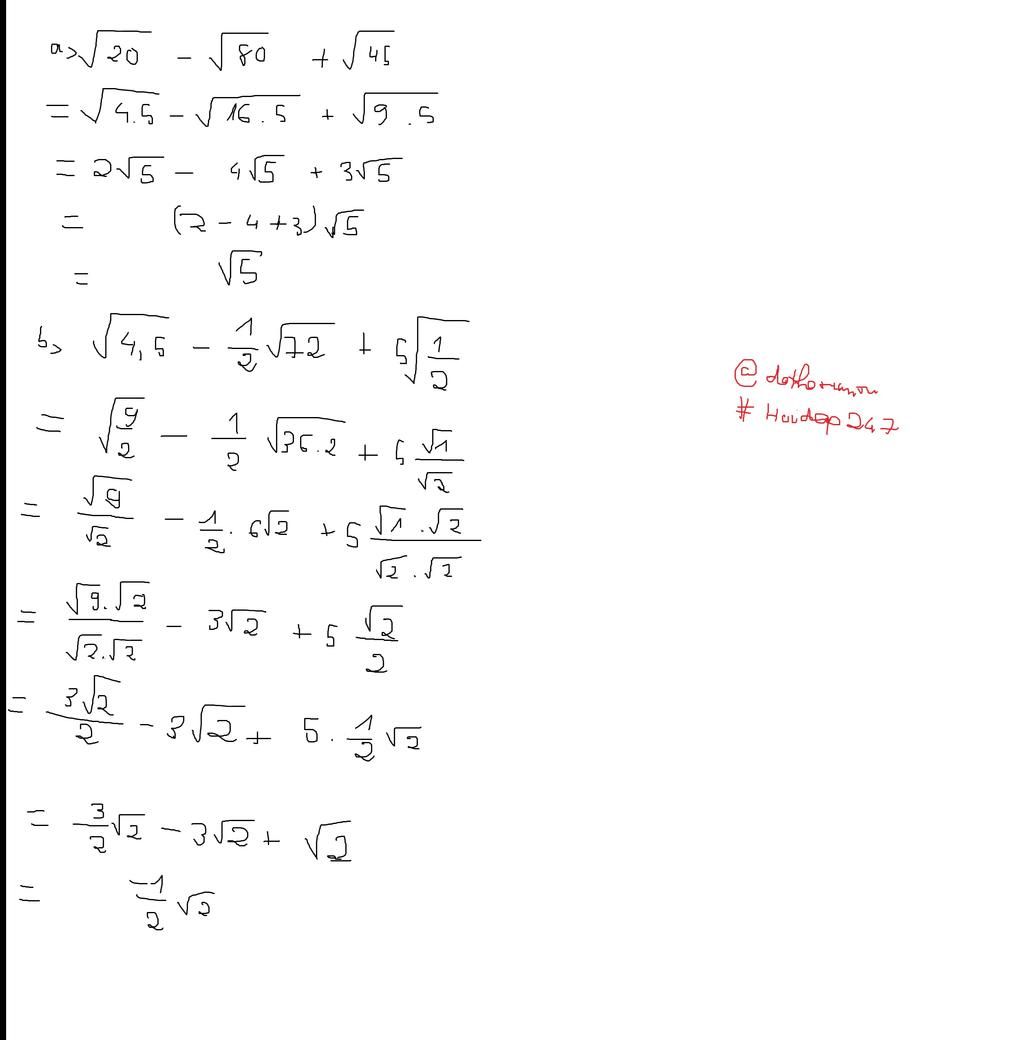 a> √20 - √80 + √45
= √4.5 - √16.5 + √9.5
= 2√5 - 4√5 + 3√5
= (2 - 4 + 3)√5
= √5
b> √4,5 - 1/2 √72 + 5√(1/2)
= √(9/2) - 1/2 √36.2 + 5 √1/√2
= √9/√2 - 1/2 . 6√2 + 5 (√1 . √2)/(√2 . √2)
= (√9.√2)/(√2.√2) - 3√2 + 5 √2/2
= 3√2/2 - 3√2 + 5 . 1/2 √2
= 3/2 √2 - 3√2 + √2
= -1/2 √2
#